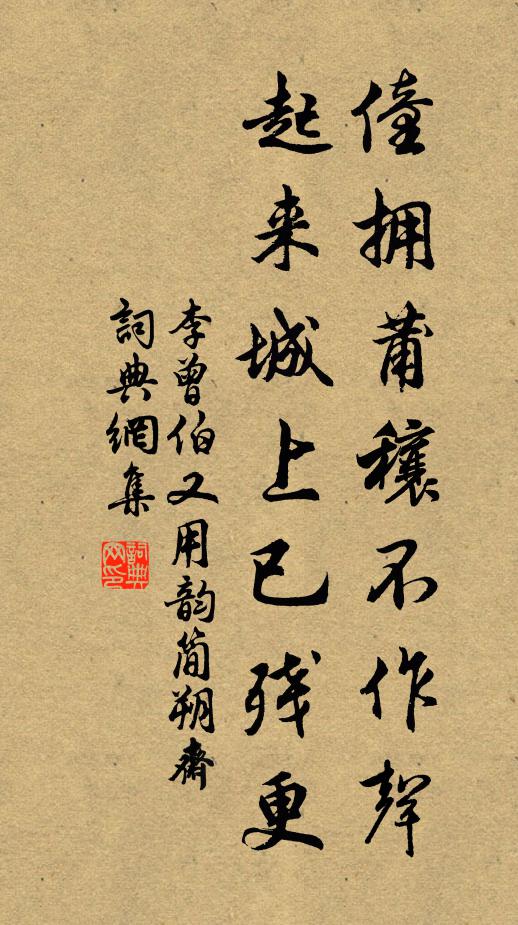 僮拥莆穰不作聲
起来城上已残更
李曾伯又用韵简朔齋
詞典網集
詞典網印